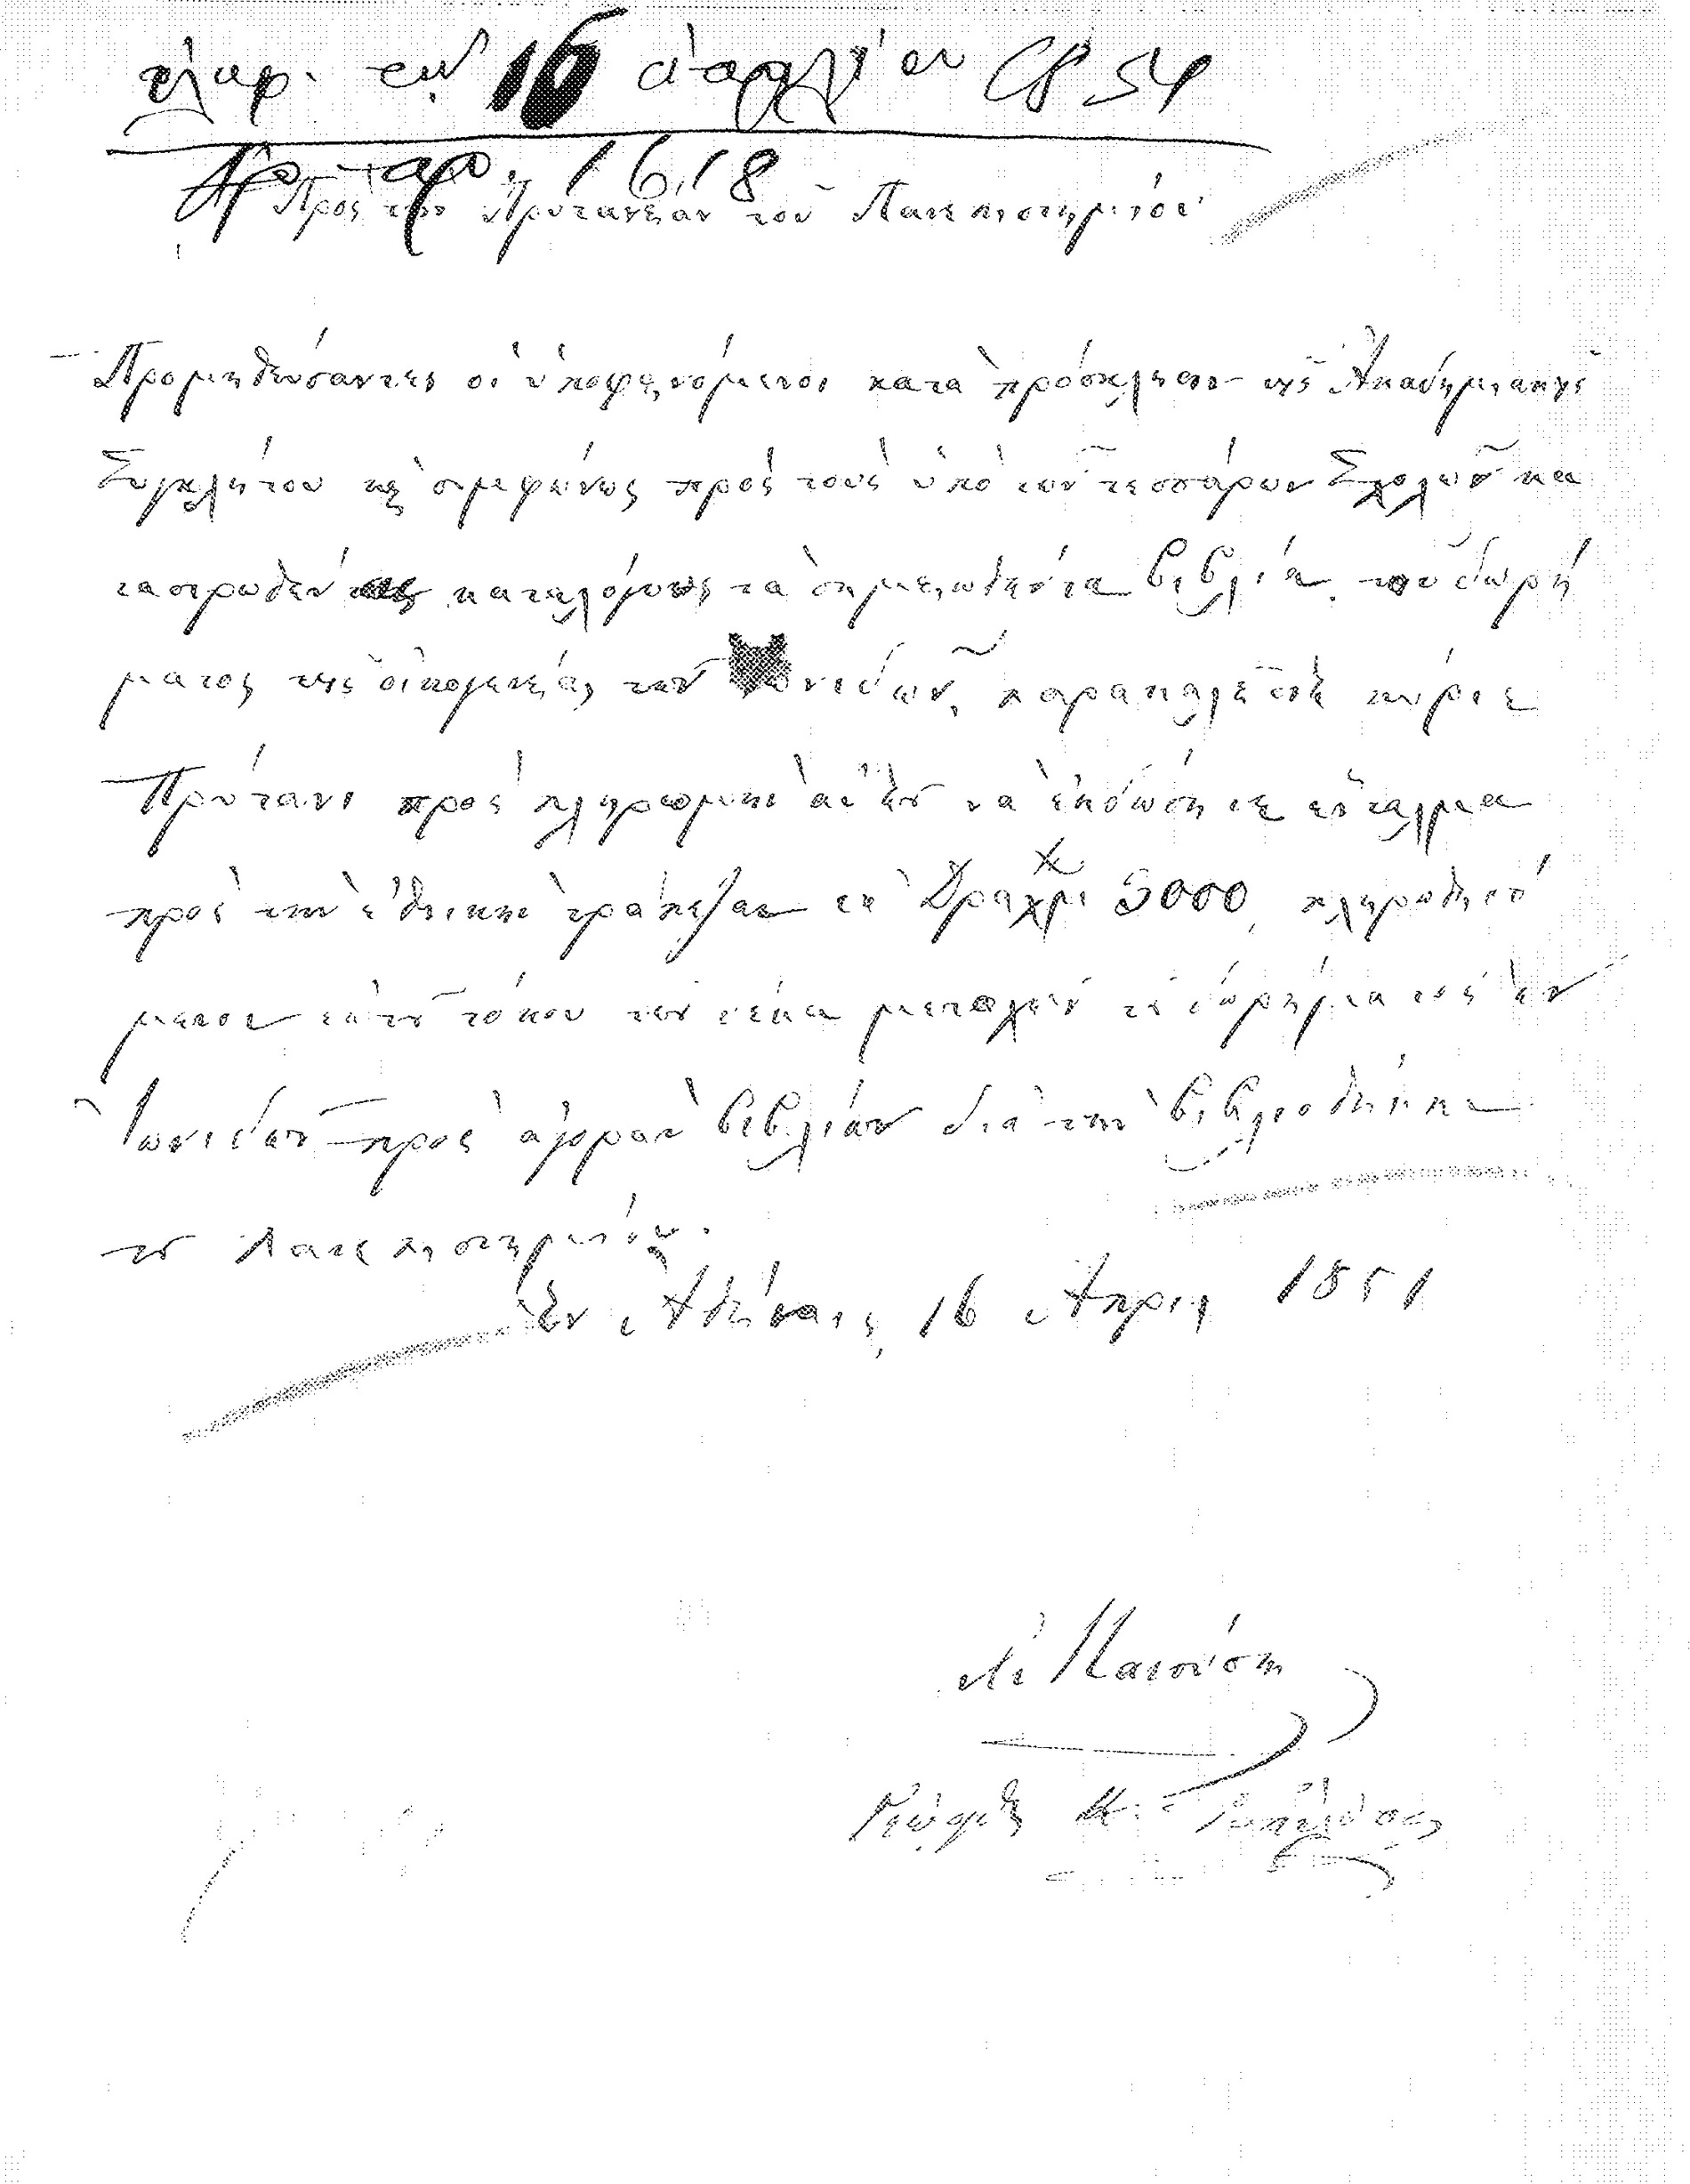 ἐλήφ. τὴν 16 ἀπριλίου 1851
Ἀρ. πρ. 1618
Πρὸς τὴν Πρυτανείαν τοῦ Πανεπιστημίου
Προμηθεύσαντες οἱ ὑποφαινόμενοι κατὰ πρόσκλησιν τῆς Ἀκαδημιακῆς
Συγκλήτου καὶ συμφώνως πρὸς τοὺς ὑπὸ τῶν τεσσάρων Σχολῶν κα
ταστρωθέντας καταλόγους τὰ σημειωθέντα βιβλία τοῦ δωρή
ματος τῆς οἰκογενείας τῶν Ἰωνιδῶν, παρακαλεῖσθε κύριε
Πρύτανι πρὸς πληρωμὴν αὐτῶν νὰ ἐκδώσητε ἔνταλμα
πρὸς τὴν ἐθνικὴν τράπεζαν ἐκ Δραχμ 5000, πληρωθησό
μενον ἐκ τοῦ τόκου τῶν δέκα μετοχῶν τοῦ δωρήματος τῶν
Ἰωνιδῶν πρὸς ἀγορὰν βιβλίων διὰ τὴν βιβλιοθήκην
τοῦ Πανεπιστημίου.
Ἐν Ἀθήναις, 16 Ἀπριλ 1851